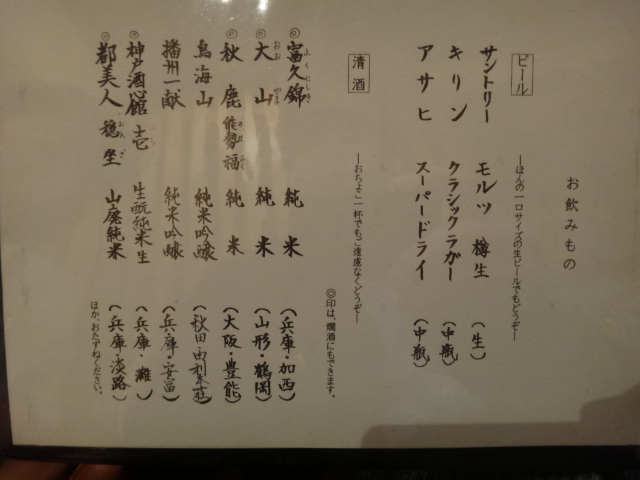 お飲みもの
ビール
―ほんの一口サイズの生ビールでもどうぞ―
サントリー モルツ 樽生 (生)
キリン クラシックラガー (中瓶)
アサヒ スーパードライ (中瓶)
清酒
―おちょこ一杯でもご遠慮なくどうぞ―
◎印は、燗酒にもできます。
◎富久錦 純米 (兵庫・加西)
◎大山 純米 (山形・鶴岡)
◎秋鹿 能勢福 純米 (大阪・豊能)
鳥海山 純米吟醸 (秋田・由利本荘)
播州一献 純米吟醸 (兵庫・安富)
◎神戸酒心館 壱 生酛純米生 (兵庫・灘)
◎都美人 穏坐 山廃純米 (兵庫・淡路)
ほか、おたずねください。